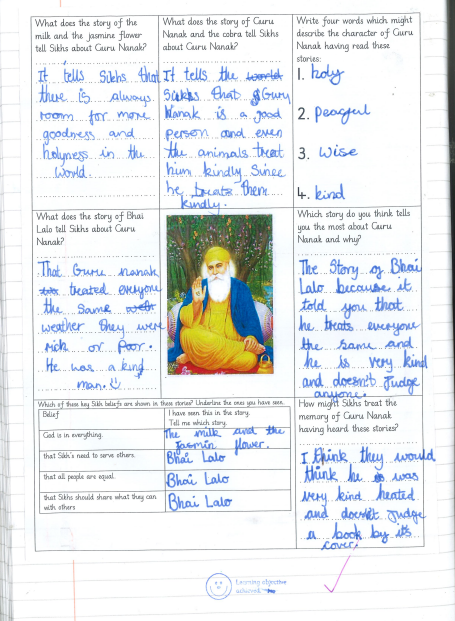 What does the story of the
milk and the jasmine flower
tell Sikhs about Guru Nanak?
It tells Sikhs that
there is always
room for more
goodness and
holyness in the
world.
What does the story of Guru
Nanak and the cobra tell Sikhs
about Guru Nanak?
It tells the world
Sikhs that Guru
Nanak is a good
person and even
the animals treat
him kindly since
he treats them
kindly.
Write four words which might
describe the character of Guru
Nanak having read these
stories:
1. holy
2. Peacful
3. wise
4. kind
What does the story of Bhai
Lalo tell Sikhs about Guru
Nanak?
That Guru nanak
treated everyone
the same
weather they were
rich or Poor.
He was a kind
man.
Which story do you think tells
you the most about Guru
Nanak and why?
The Story of Bhai
Lalo because it
told you that
he treats everyone
the same and
he is very kind
and doesn't judge
anyone.
Which of these key Sikh beliefs are shown in these stories? Underline the ones you have seen.
Belief
I have seen this in the story.
Tell me which story.
God is in everything.
The milk and the
Jasmin flower.
that Sikh's need to serve others.
Bhai Lalo
that all people are equal.
Bhai Lalo
that Sikhs should share what they can
with others
Bhai Lalo
How might Sikhs treat the
memory of Guru Nanak
having heard these stories?
I think they would
think he was
very kind heated
and doesn't judge
a book by it's
cover.
Learning objective
achieved